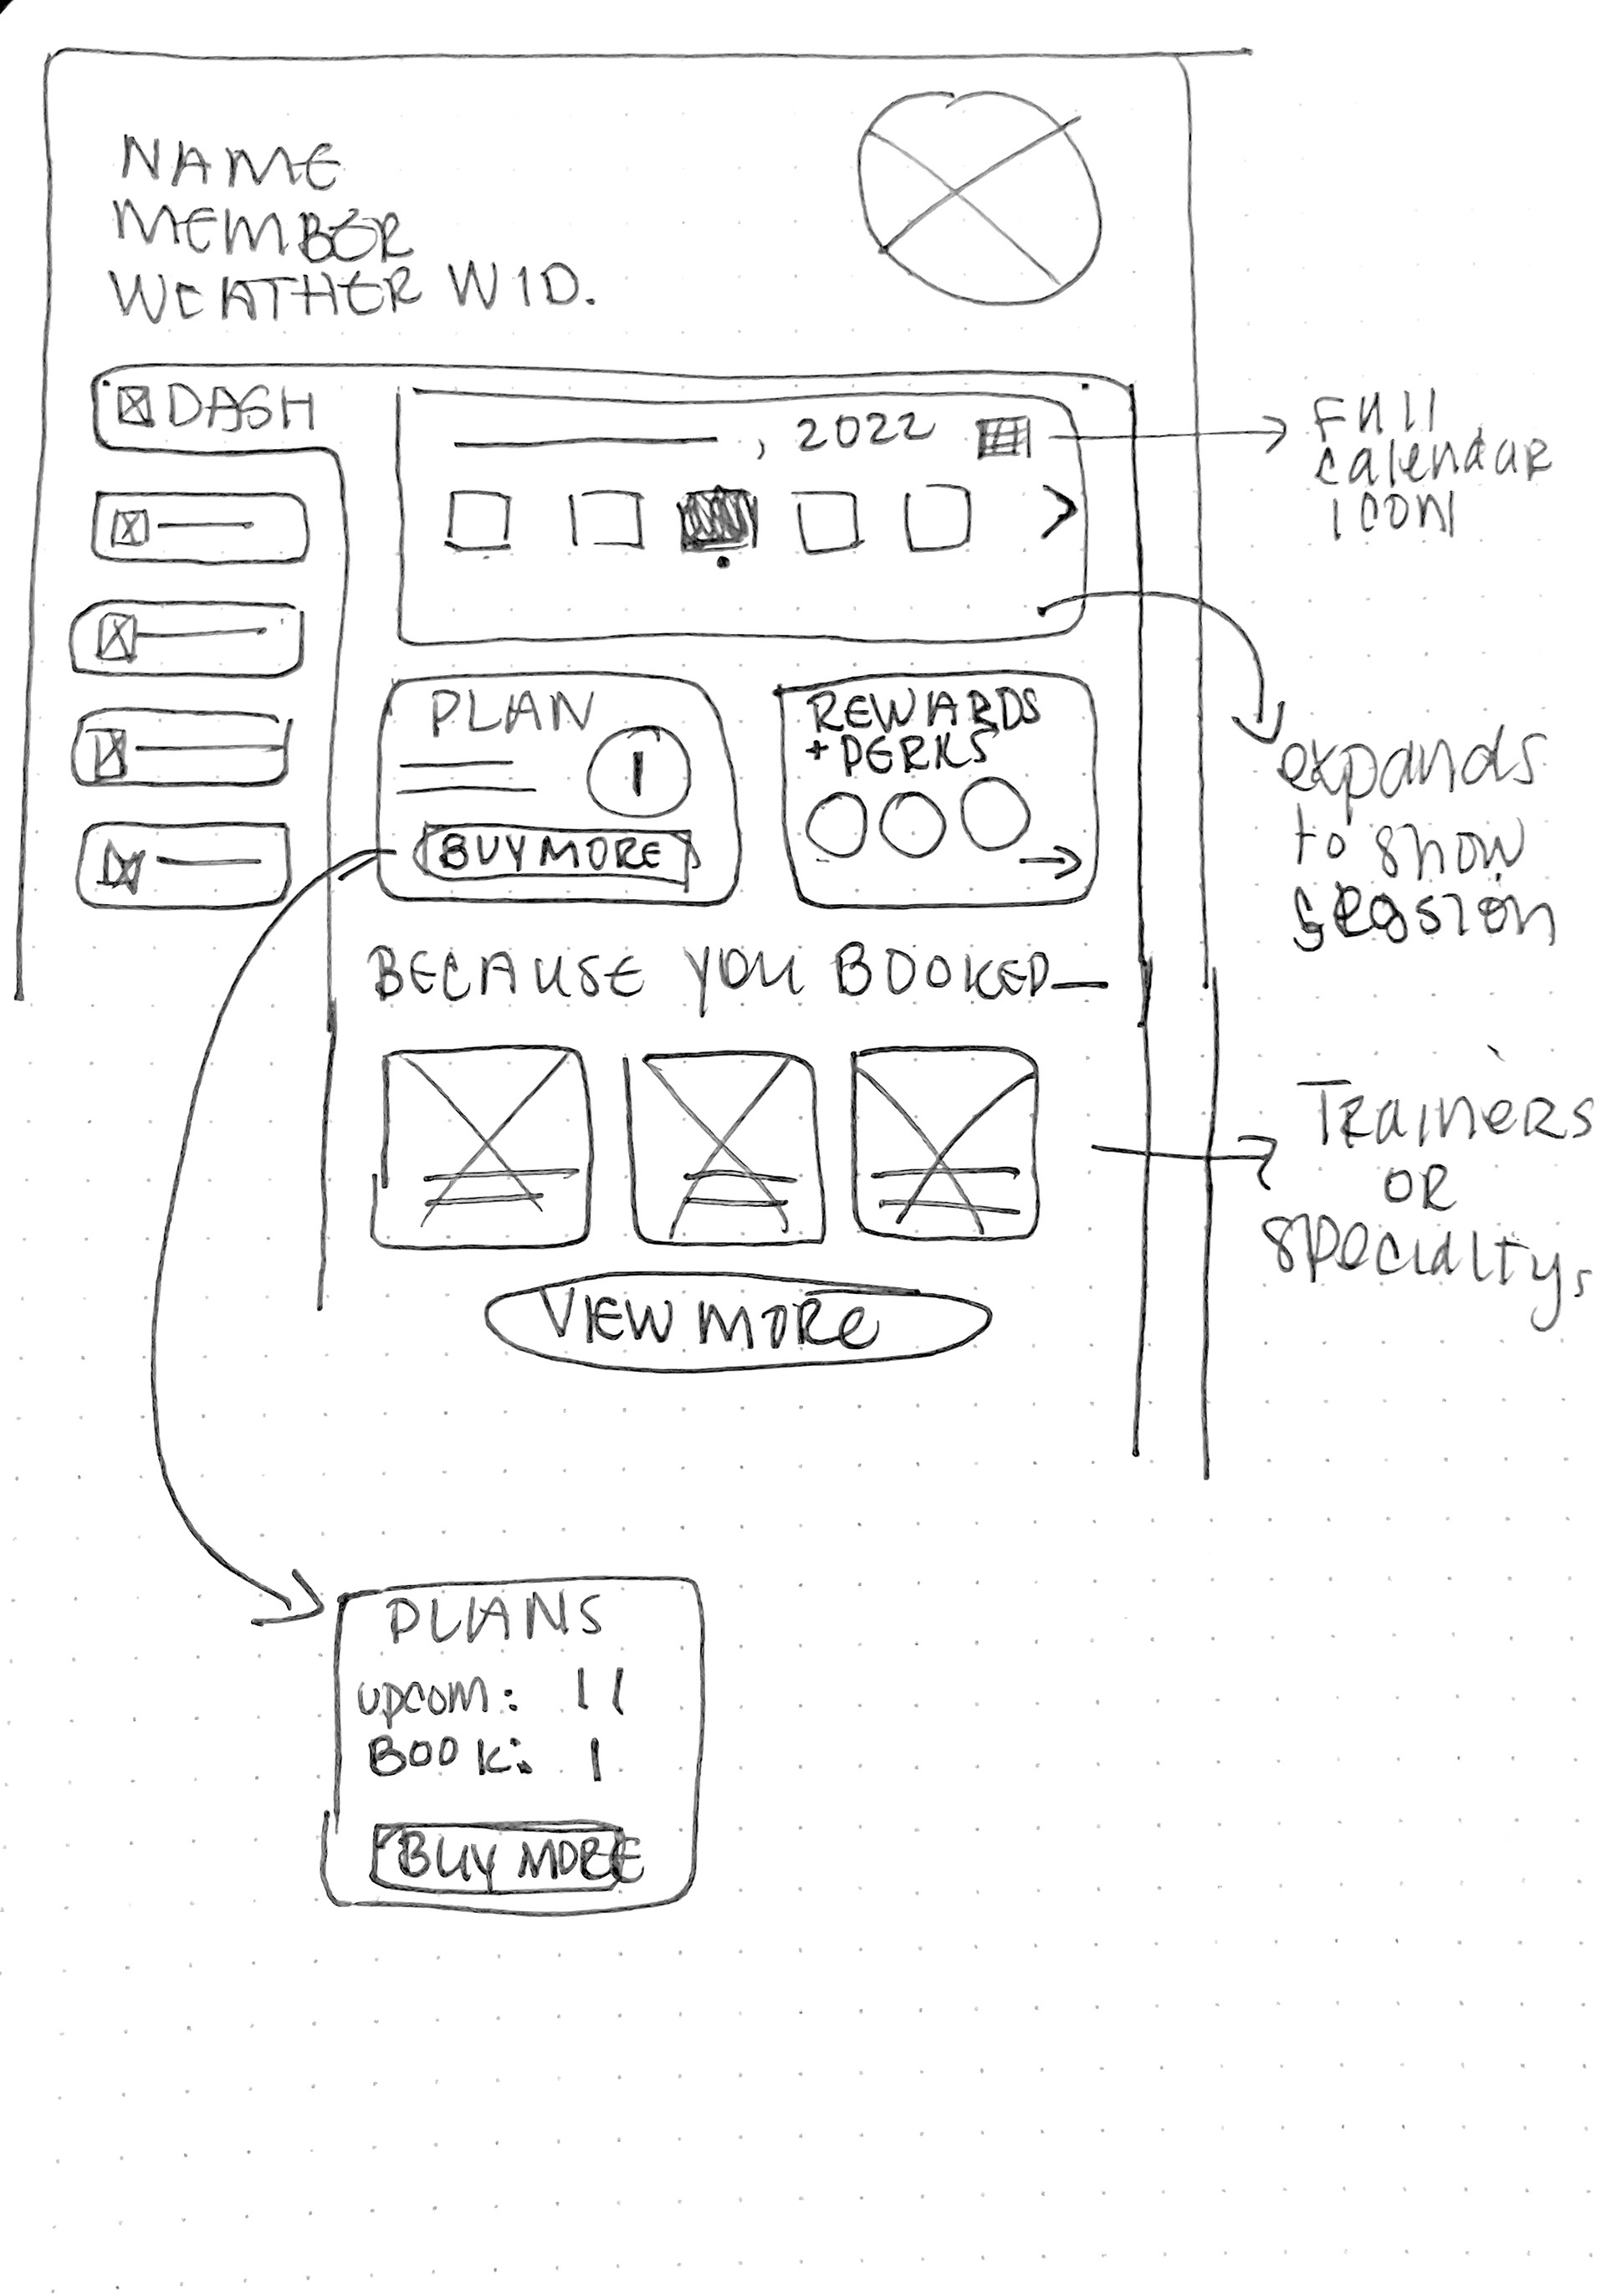 NAME
MEMBER
WEATHER WID.
DASH
, 2022
FULL
calendar
ICON
PLAN
1
BUY MORE
REWARDS
+ PERKS
expands
to show
session
BECAUSE YOU BOOKED_
TRAINERS
OR
specialtys
VIEW MORE
PLANS
upcom: 11
BOOK: 1
BUY MORE